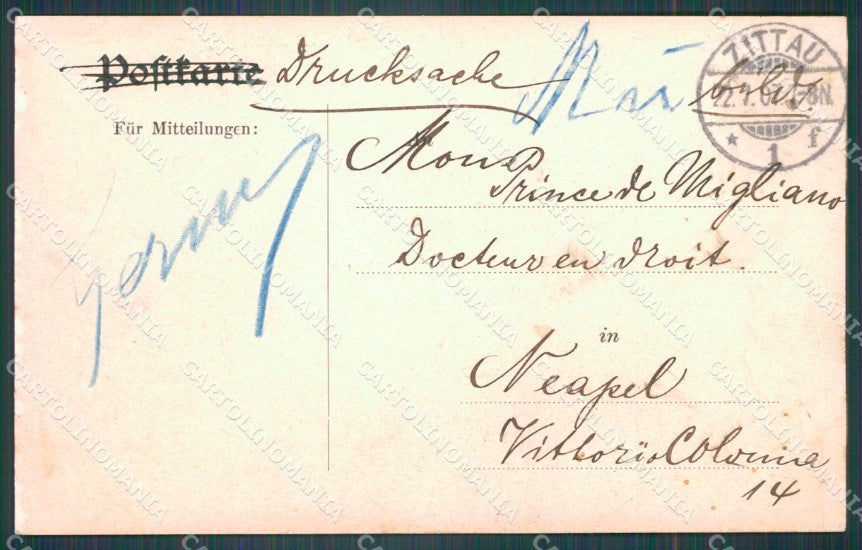 Postkarte Drucksache
Für Mitteilungen:
ZITTAU
1 f
Mons
Prince de Migliano
Docteur en droit.
in
Neapel
Vittorio Colonna
14
CARTOLINOMANIA